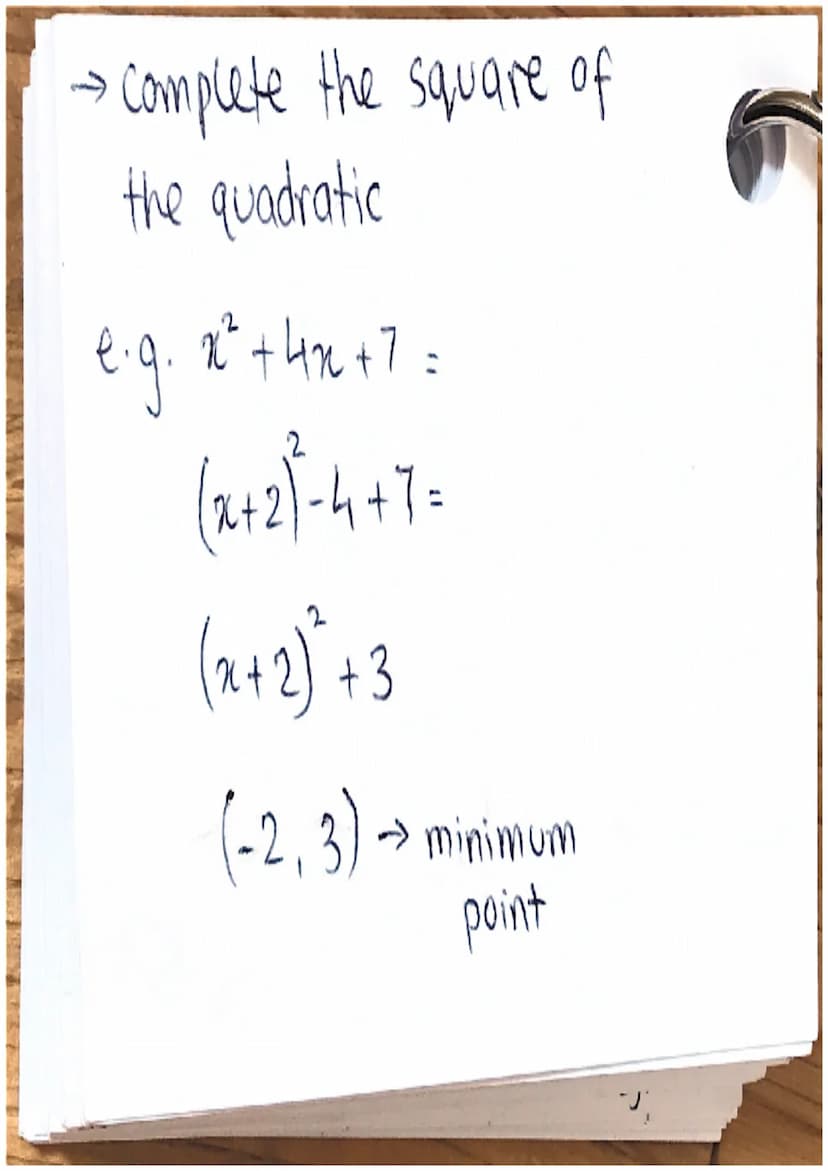 → Complete the square of
the quadratic
e.g. x² + 4x + 7 =
(x+2)² - 4 + 7 =
(x+2)² + 3
(-2, 3) → minimum
point